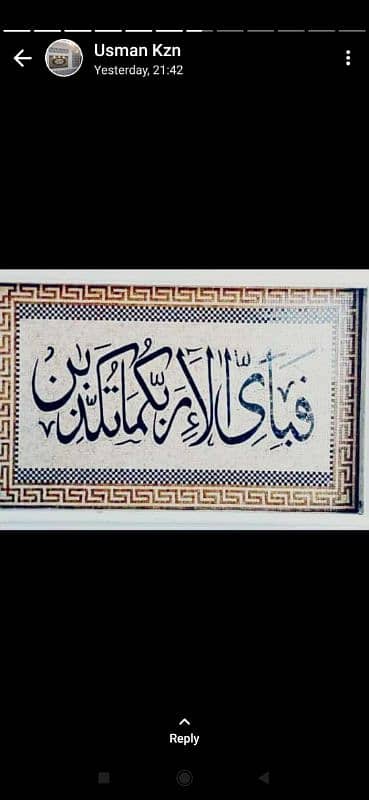 Usman Kzn
Yesterday, 21:42
فَبِأَيِّ الَاءِ رَبِّكُمَا تُكَذِّبٰنِ
Reply